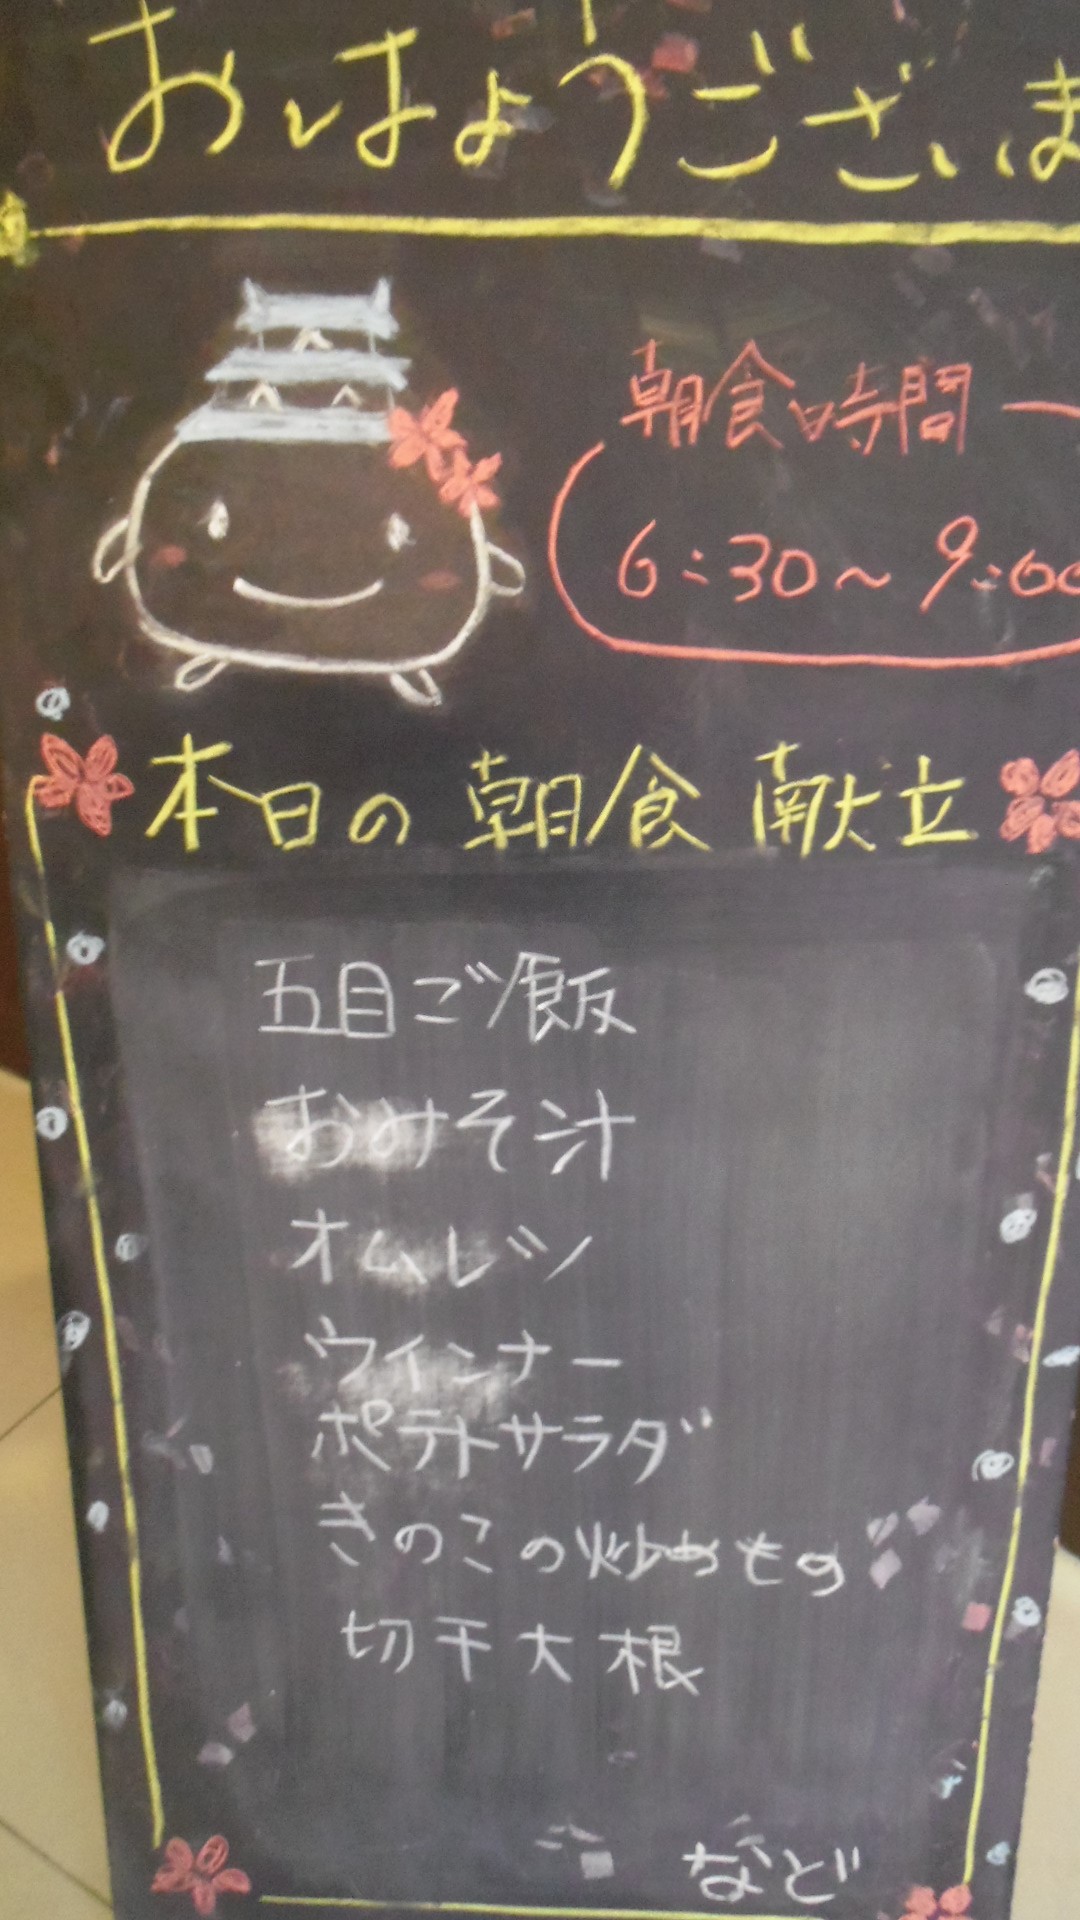 おはようございま
朝食時間
6:30～9:00
本日の朝食献立
五目ご飯
おみそ汁
オムレツ
ウインナー
ポテトサラダ
きのこの炒めもの
切干大根
など